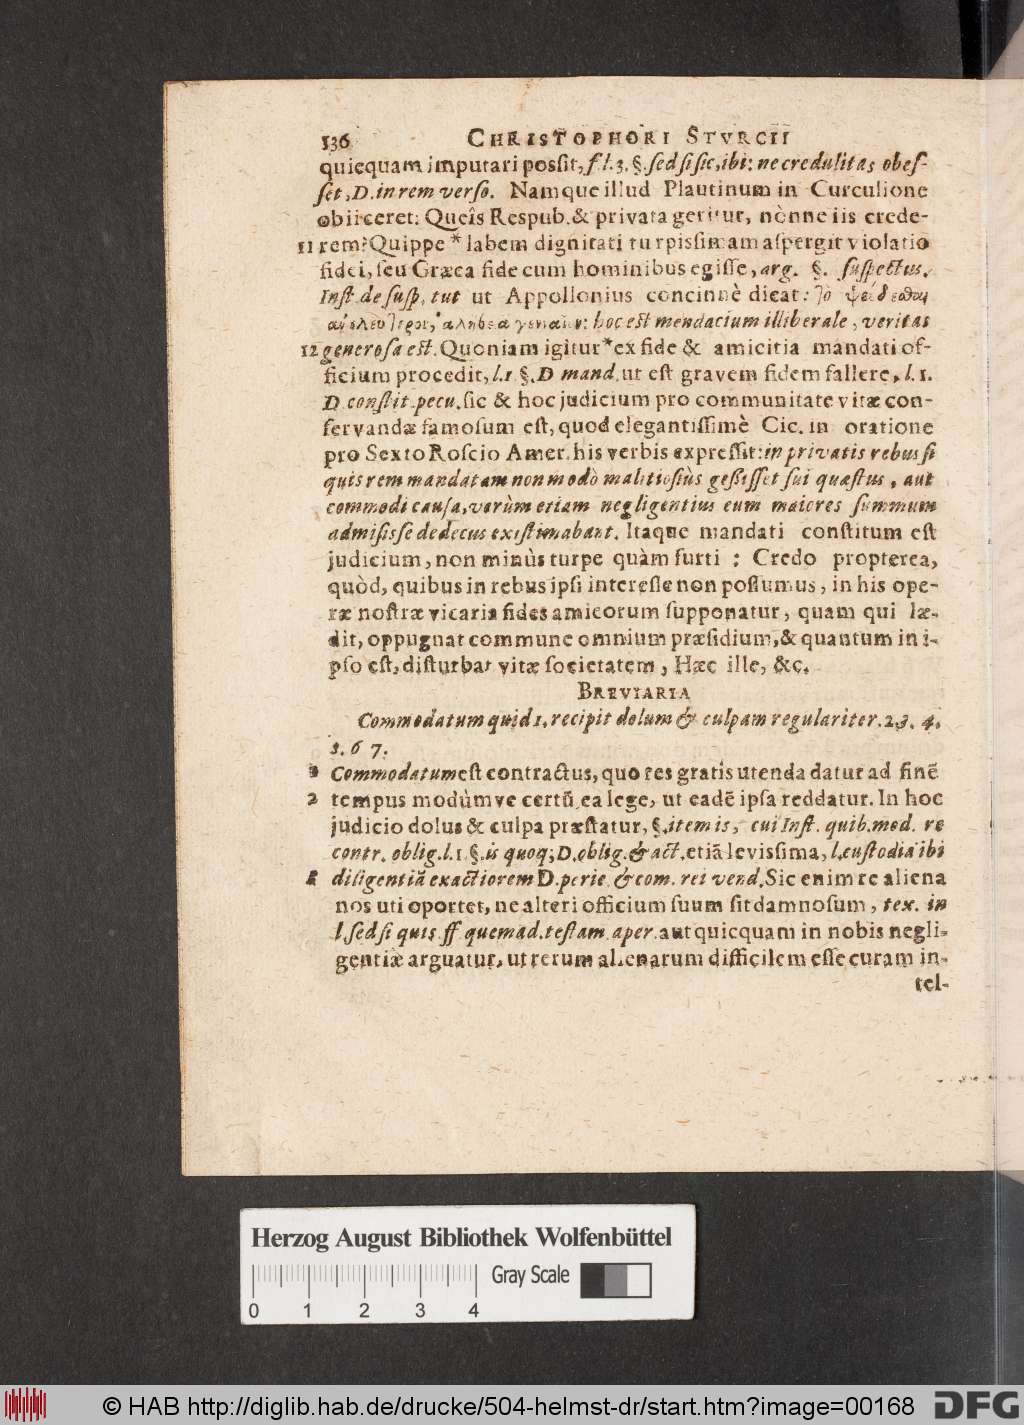 136 CHRISTOPHORI STVRCII
quicquam imputari possit, f. l. 3. §. sed si sic, ibi: ne credulitas obes-
set, D. in rem verso. Namque illud Plautinum in Curculione
obiiceret: Queîs Respub. & privata geritur, nònne iis crede-
11 rem? Quippe * labem dignitati turpissimam aspergit violatio
fidei, seu Græca fide cum hominibus egisse, arg. §. suspectus.
Inst. de susp. tut ut Appollonius concinnè dicat: Τὸ ψεύδεσθαι
hoc est mendacium illiberale, veritas
12 generosa est. Quoniam igitur * ex fide & amicitia mandati of-
ficium procedit, l. 1 §. D mand. ut est gravem fidem fallere, l. 1.
D constit. pecu. sic & hoc judicium pro communitate vitæ con-
servandæ famosum est, quod elegantissimè Cic. in oratione
pro Sexto Roscio Amer. his verbis expressit: in privatis rebus si
quis rem mandatam non modò malitiosiùs gessisset sui quæstus, aut
commodi causa, verùm etiam negligentius eum maiores summum
admisisse dedecus existimabant. Itaque mandati constitum est
judicium, non minùs turpe quàm furti : Credo propterea,
quòd, quibus in rebus ipsi interesse non possumus, in his ope-
ræ nostræ vicaria fides amicorum supponatur, quam qui læ-
dit, oppugnat commune omnium præsidium, & quantum in i-
pso est, disturbat vitæ societatem, Hæc ille, &c.
BREVIARIA
Commodatum quid 1. recipit dolum & culpam regulariter. 2. 3. 4.
5. 6 7.
Commodatum est contractus, quo res gratis utenda datur ad finē
2 tempus modùmve certū, ea lege, ut eadē ipsa reddatur. In hoc
judicio dolus & culpa præstatur, §. item is, cui Inst. quib. mod. re
contr. oblig. l. 1 §. is quoq; D. oblig. & act. etiā levissima, l. custodia ibi
diligentiā exactiorem D. peric. & com. rei vend. Sic enim re aliena
nos uti oportet, ne alteri officium suum sit damnosum, tex. in
l. sed si quis ff quemad. testam aper. aut quicquam in nobis negli-
gentiæ arguatur, ut rerum alienarum difficilem esse curam in-
tel-
Herzog August Bibliothek Wolfenbüttel
0 1 2 3 4 Gray Scale
© HAB http://diglib.hab.de/drucke/504-helmst-dr/start.htm?image=00168 DFG